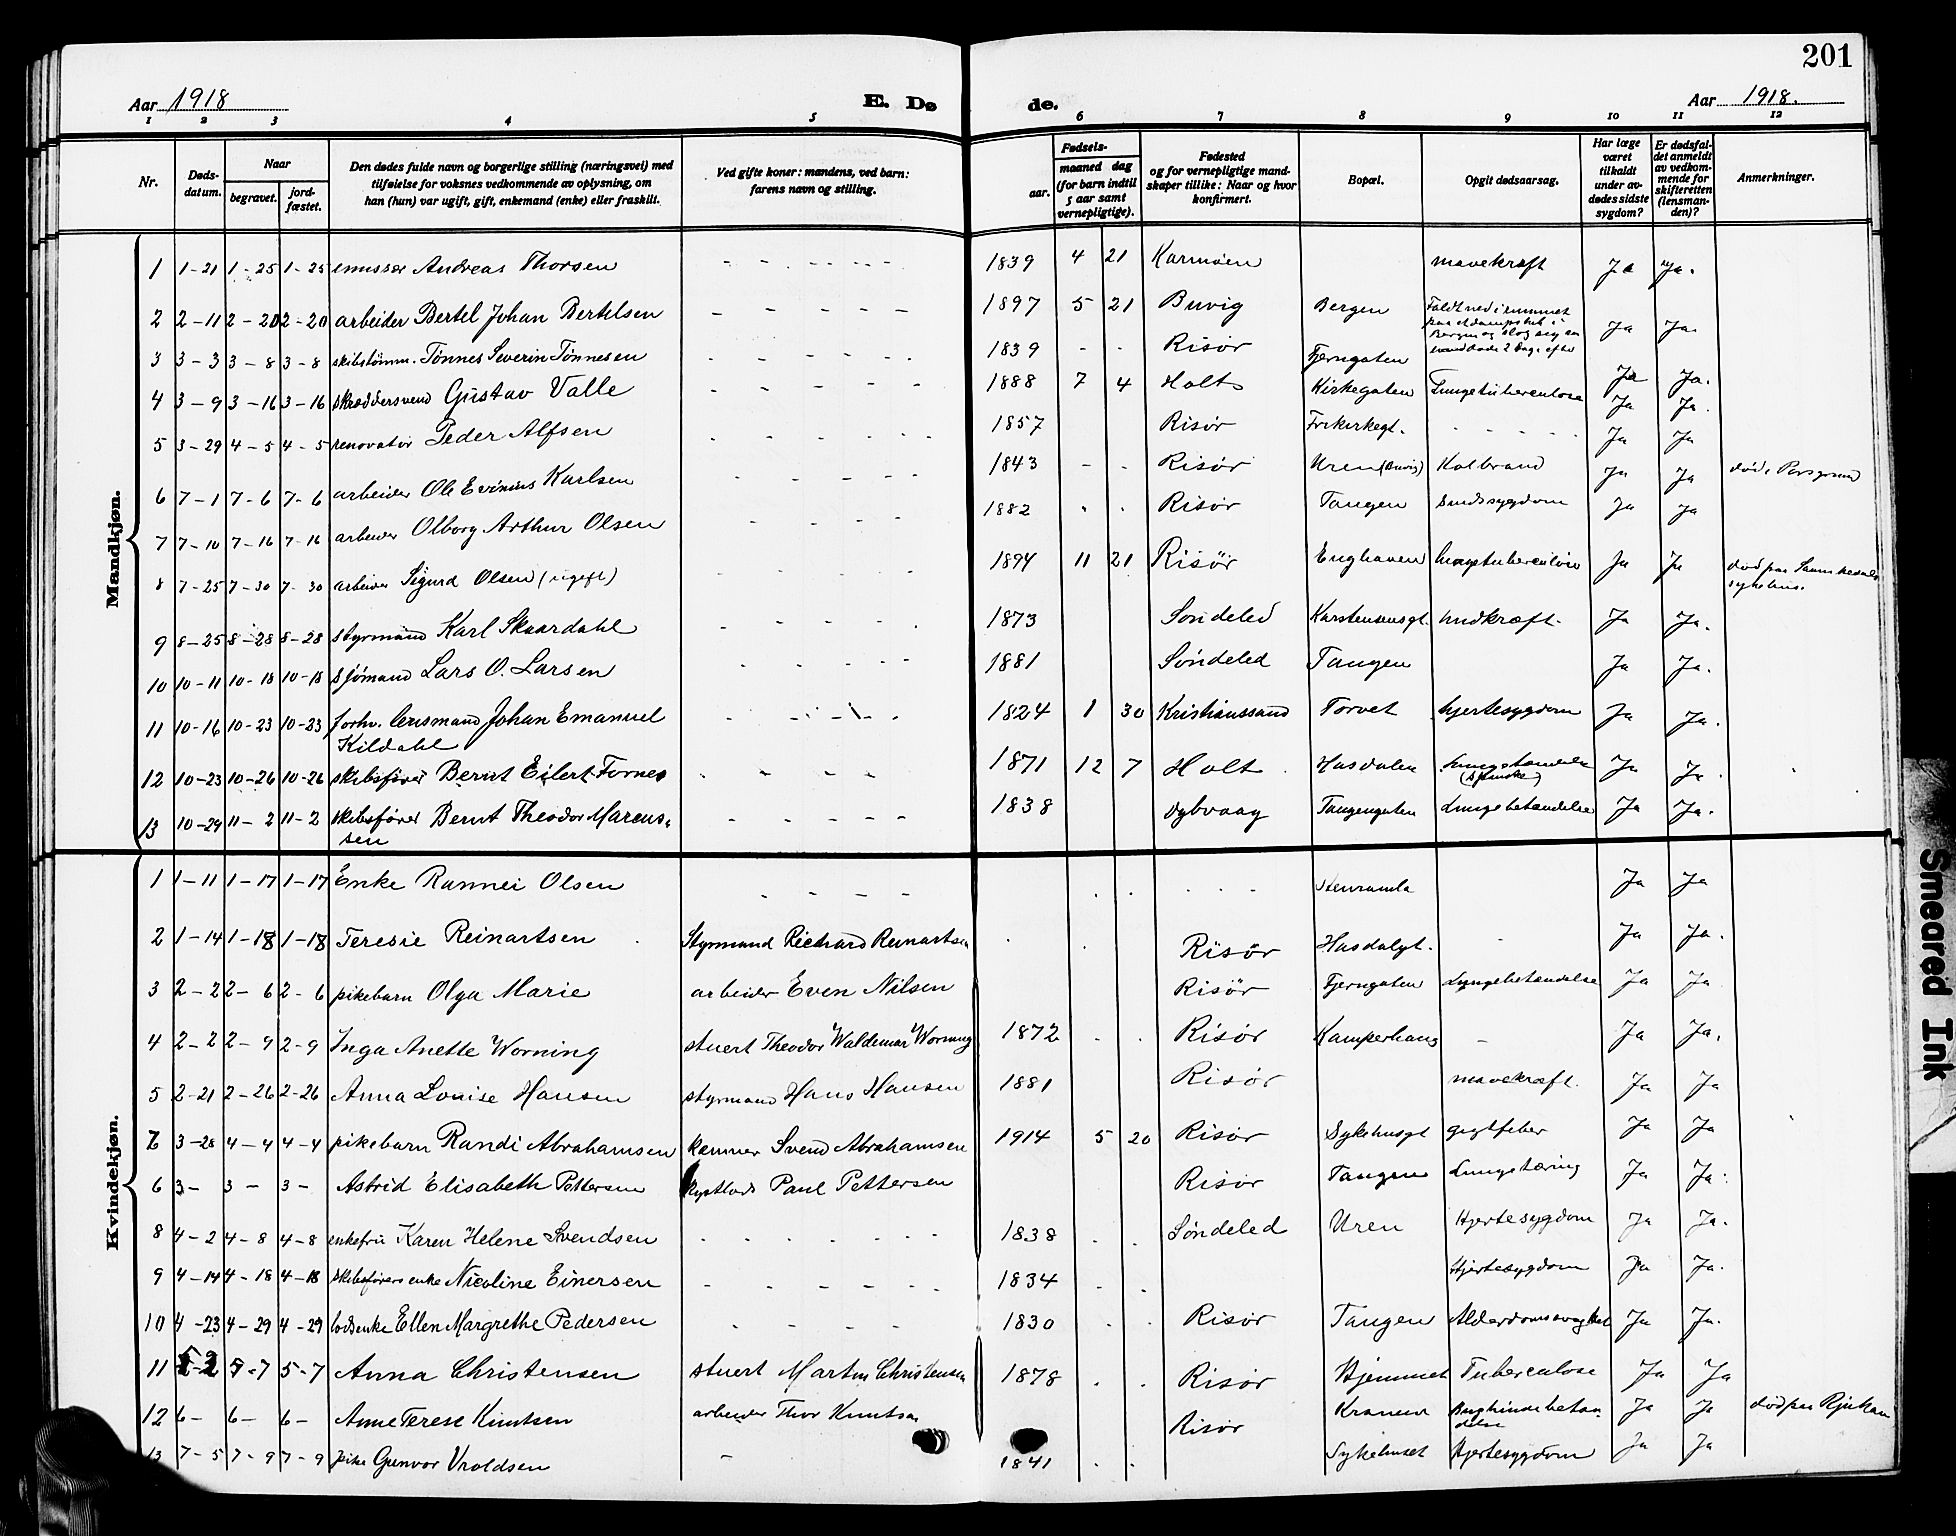 201
Aar 1918 E. Døde. Aar 1918.
1 2 3 4 5 6 7 8 9 10 11 12
Nr. Døds-datum. Naar begravet. jord-fæstet. Den dødes fulde navn og borgerlige stilling (næringsvei) med tilføielse for voksnes vedkommende av oplysning, om han (hun) var ugift, gift, enkemand (enke) eller fraskilt. Ved gifte koner: mandens, ved barn: farens navn og stilling. Fødsels- aar. maaned dag (for barn indtil 5 aar samt vernepligtige). Fødested og for vernepligtige mandskaper tillike: Naar og hvor konfirmert. Bopæl. Opgit dødsaarsag. Har læge været tilkaldt under avdødes sidste sygdom? Er dødsfaldet anmeldt av vedkommende for skifteretten (lensmanden)? Anmerkninger.
Mandkjøn.
1 1-21 1-25 1-25 Andreas Thorsen - - - - - 1839 4 21 Karmøen mavekræft Ja Ja.
2 2-11 2-20 2-20 arbeider Bertel Johan Bertelsen - - - - 1897 5 21 Buvig Bergen Faldt ned i rummet paa et dampskib i Bergen og slog sig saa 2 dage efter Ja Ja.
3 3-3 3-8 3-8 skibstømm. Tønnes Severin Tønnesen - - - - - 1839 - - Risør Tjerngaten Ja Ja.
4 3-9 3-16 3-16 skræddersvend Gustav Valle - - - - - 1888 7 4 Holt Kirkegaten Lungetuberculose Ja Ja.
5 3-29 4-5 4-5 renovatør Peder Alfsen - - - - - 1857 Risør Frikirkegt. - - - - Ja Ja
6 7-1 7-6 7-6 arbeider Ole Evinius Karlsen - - - - 1843 - - Risør Uren (Buvig) Kolbrand Ja Ja død i Porsgrund
7 7-10 7-16 7-16 arbeider Olborg Arthur Olsen - - - - 1882 - - Risør Tangen Sindssygdom Ja Ja
8 7-25 7-30 7-30 arbeider Sigurd Olsen (ugift) - - - - - 1894 11 21 Risør Enghaven Lungetuberculose Ja Ja død paa sykehus.
9 8-25 8-28 8-28 styrmand Karl Skaardahl - - - - - 1873 Søndeled Karstensensgt. Ja Ja.
10 10-11 10-18 10-18 sjømand Lars O. Larsen - - - - - 1881 Søndeled Tangen Ja Ja.
11 10-16 10-23 10-23 forhv. lensmand Johan Emanuel Kildahl - - - - - 1824 1 30 Kristianssand Torvet hjertesygdom Ja Ja.
12 10-23 10-26 10-26 skibsfører Bernt Eilert Fornes - - - - 1871 12 7 Holt Hasdalen (spanske) Ja Ja.
13 10-29 11-2 11-2 skibsfører Bernt Theodor Marcussen - - - - - 1838 Dybvaag Tangengaten Lungebetændelse Ja Ja.
Kvindekjøn.
1 1-11 1-17 1-17 Enke Rannei Olsen - - - - - - - - - Ja Ja
2 1-14 1-18 1-18 Teresie Reinartsen Styrmand Richard Reinartsen - - Risør Hasdalgt. - Ja Ja.
3 2-2 2-6 2-6 pikebarn Olga Marie arbeider Even Nilsen Risør Tjerngaten Lungebetændelse Ja Ja
4 2-2 2-9 2-9 Inga Anette Worning stuert Theodor Waldemar Worning 1872 - - Risør Kamperhaug - Ja Ja.
5 2-21 2-26 2-26 Anna Louise Hansen styrmand Hans Hansen 1881 Risør mavekræft. Ja Ja
6 3-28 4-4 4-4 pikebarn Randi Abrahamsen kemner Svend Abrahamsen 1914 5 20 Risør Sykehusgt gigtfeber Ja Ja
6 3- 3- 3- Astrid Elisabeth Pettersen Paul Pettersen Risør Tangen Lungetæring Ja Ja.
8 4-2 4-8 4-8 enkefru Karen Helene Svendsen - - - - - - 1838 - - Søndeled Uren Hjertesygdom Ja Ja.
9 4-14 4-18 4-18 skibsførers enke Nicoline Einersen - - - - - 1834 - - Hjertesygdom Ja Ja.
10 4-23 4-29 4-29 lodsenke Ellen Margrethe Pedersen - - - - - 1830 - - Risør Tangen Alderdomssvaghet Ja Ja.
11 5-2 5-7 5-7 Anna Christensen stuert Martin Christensen 1878 - - Risør Hjemmet Tuberculose Ja Ja
12 6- 6- 6- Anne Terese Knutsen arbeider Thor Knutsen Risør Kranen Bughindebetændelse Ja Ja død paa Rjukan
13 7-5 7-9 7-9 pike Gunvor Vroldsen - 1841 - - Sykehuset Hjertesygdom Ja Ja
Smeared Ink